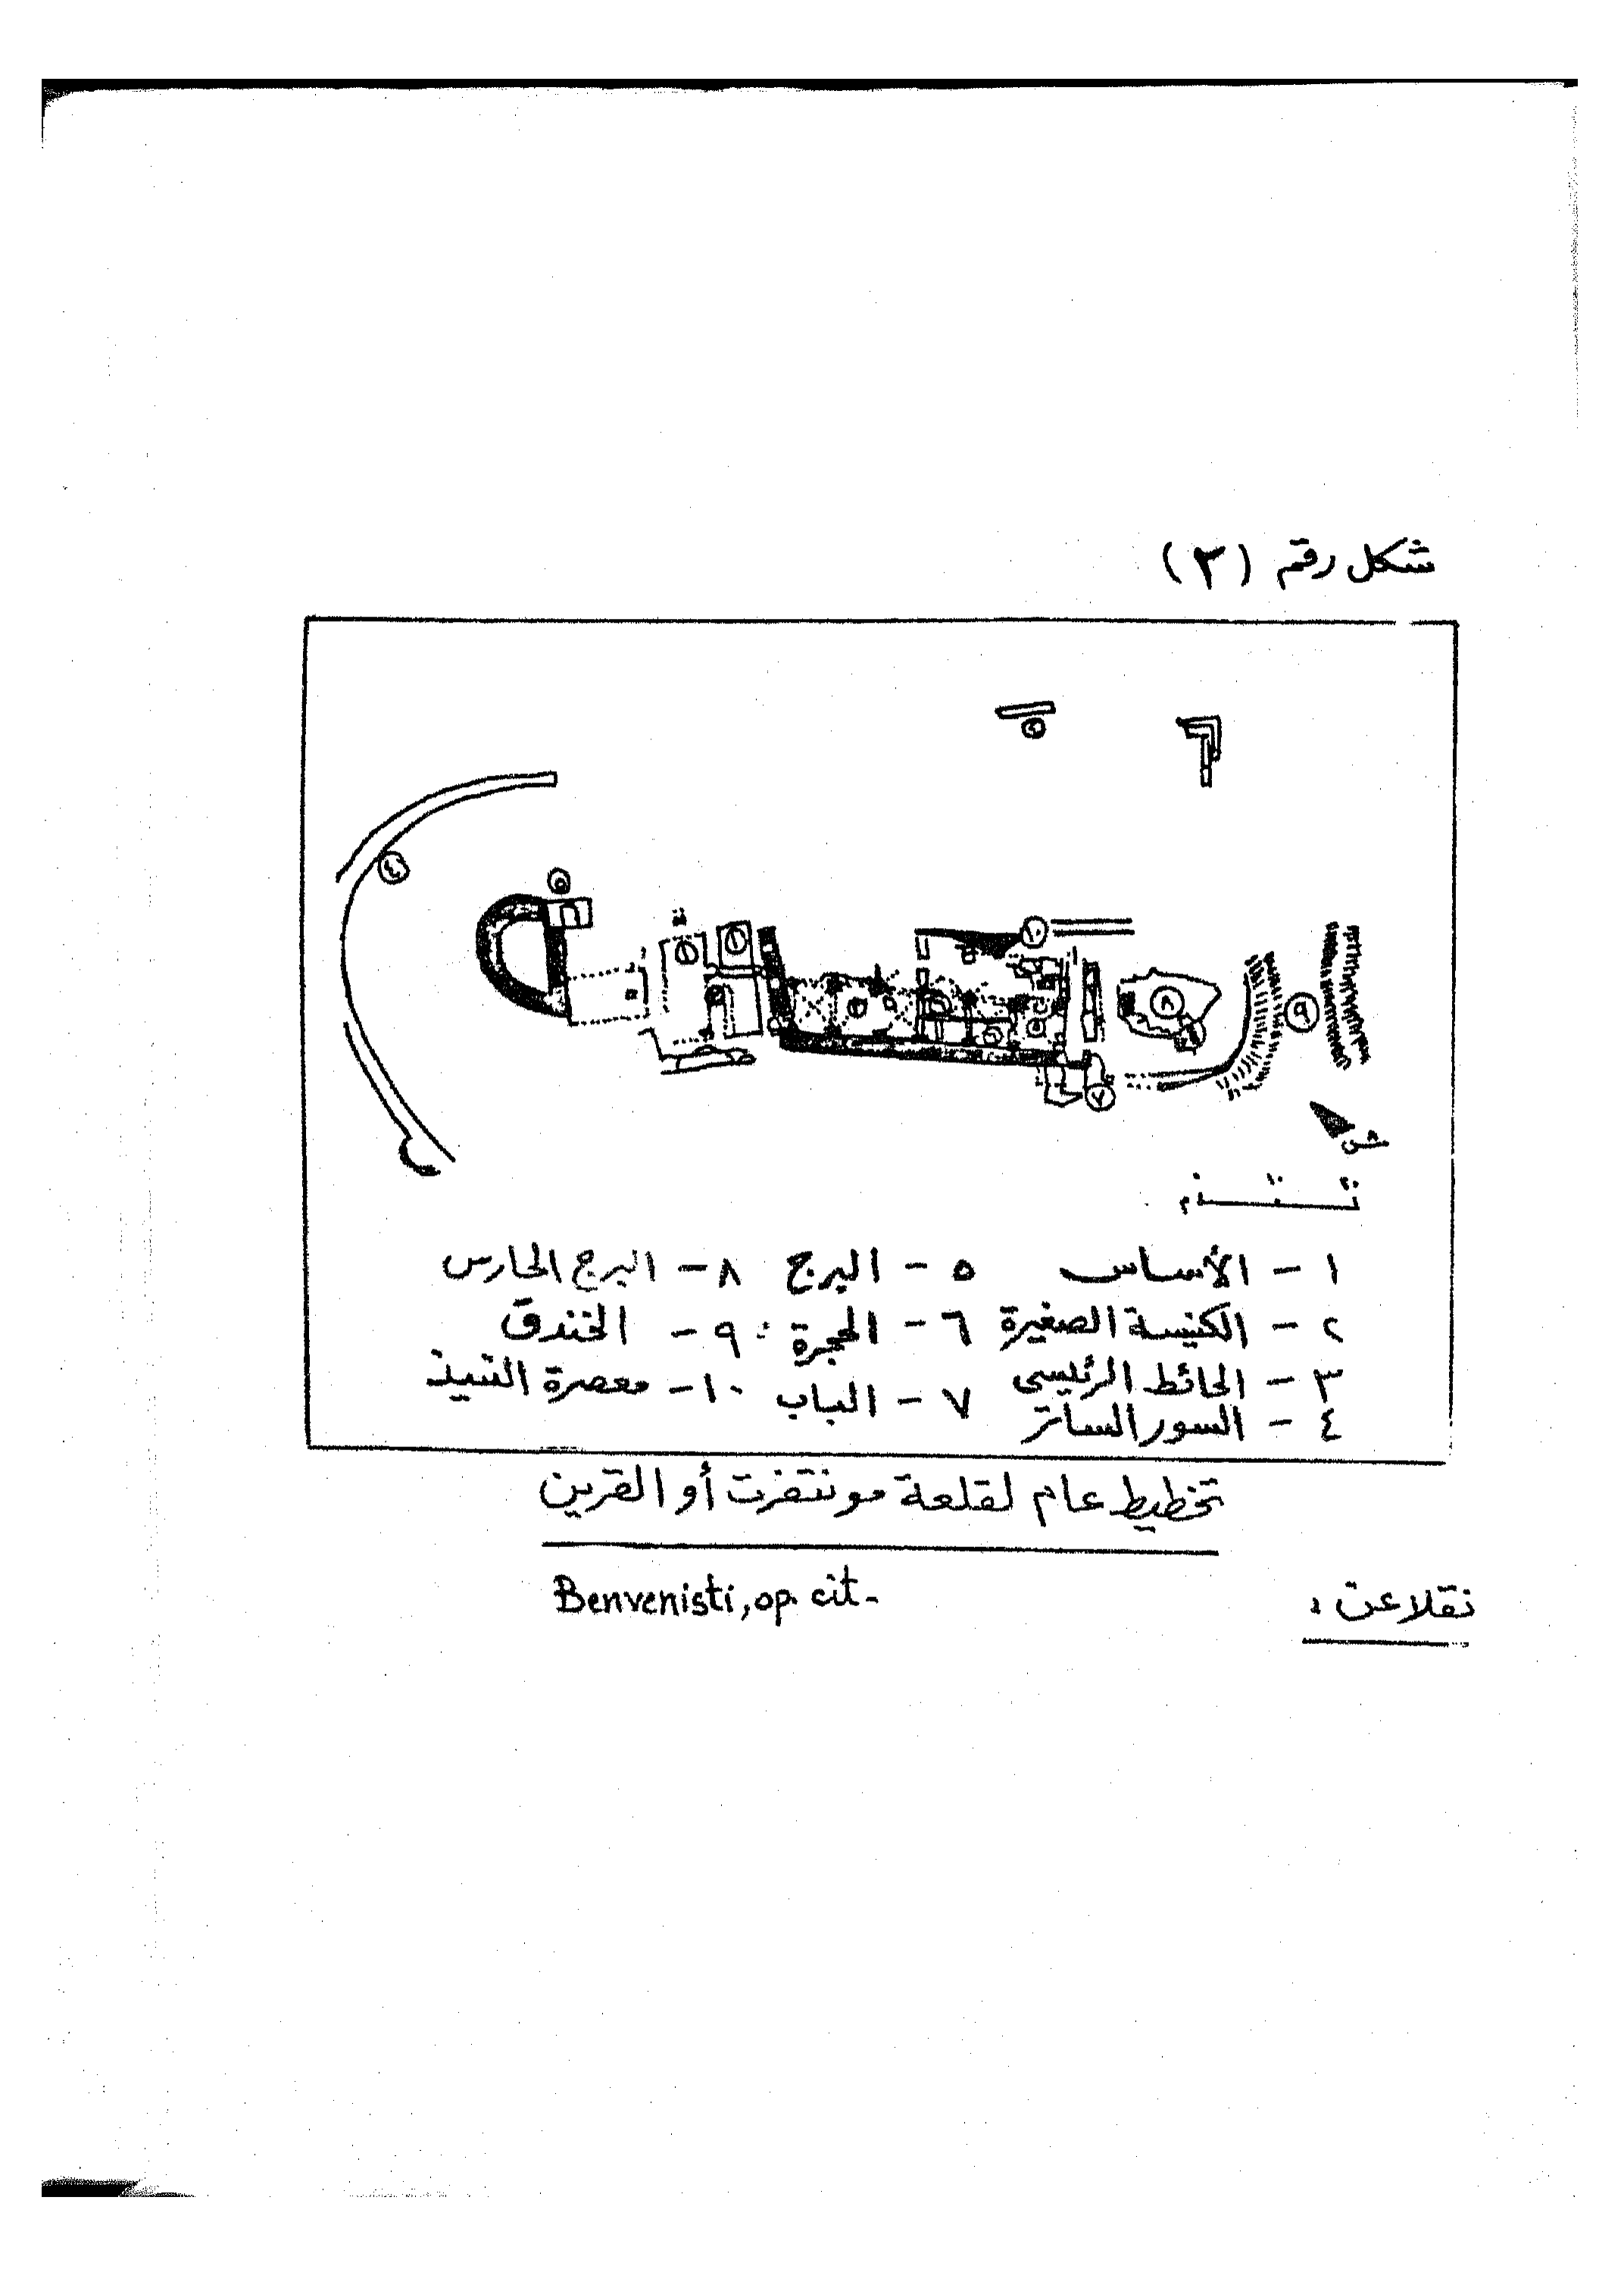 شكل رقم (٢)
٤
٥
٦
١
١
٢
٣
١٠
٨
٩
٧
ش
١ - الأساس ٥ - البرج ٨ - البرج الحارس
٢ - الكنيسة الصغيرة ٦ - الحجرة ٩ - الخندق
٣ - الحائط الرئيسى ٧ - الباب ١٠ - معصرة النبيذ
٤ - السور الساتر
تخطيط عام لقلعة مونتفرت أو القرين
نقلا عن : Benvenisti, op. cit-